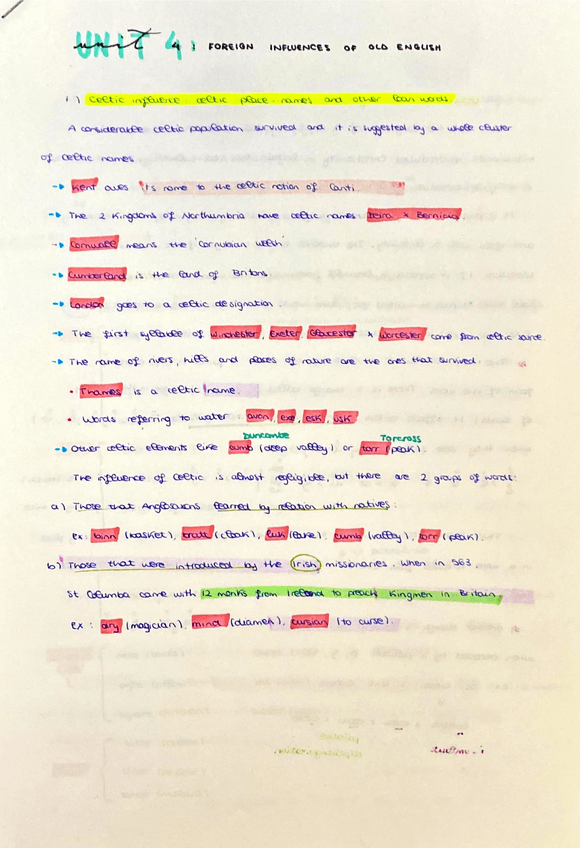 UNIT 4: FOREIGN INFLUENCES OF OLD ENGLISH
1) Celtic influence: celtic place-names and other loan words.
A considerable celtic population survived and it is suggested by a whole cluster
of celtic names.
→ Kent owes its name to the celtic notion of Canti.
→ The 2 Kingdoms of Northumbria have celtic names: Deira & Bernicia.
→ Cornwall means the 'Cornubian welsh'
→ Cumberland is the land of Britons.
→ London goes to a celtic designation.
→ The first syllable of Winchester, Exeter, Gloucester & Worcester come from celtic source.
→ The name of rivers, hills, and places of nature are the ones that survived.
• Thames is a celtic name.
• Words referring to water: avon, exe, esk, usk.
Duncombe Torcross
→ Other celtic elements like cumb (deep valley) or torr (peak).
The influence of Celtic is almost negligible, but there are 2 groups of words:
a) Those that Anglosaxons learned by relation with natives:
ex: binn (basket), bratt (cloak), luh (lake), cumb (valley), torr (peak).
b) Those that were introduced by the Irish missionaries. When in 563,
St Columba came with 12 monks from Ireland to preach Kingmen in Britain.
ex: dry (magician), mind (diamen), cursian (to curse).